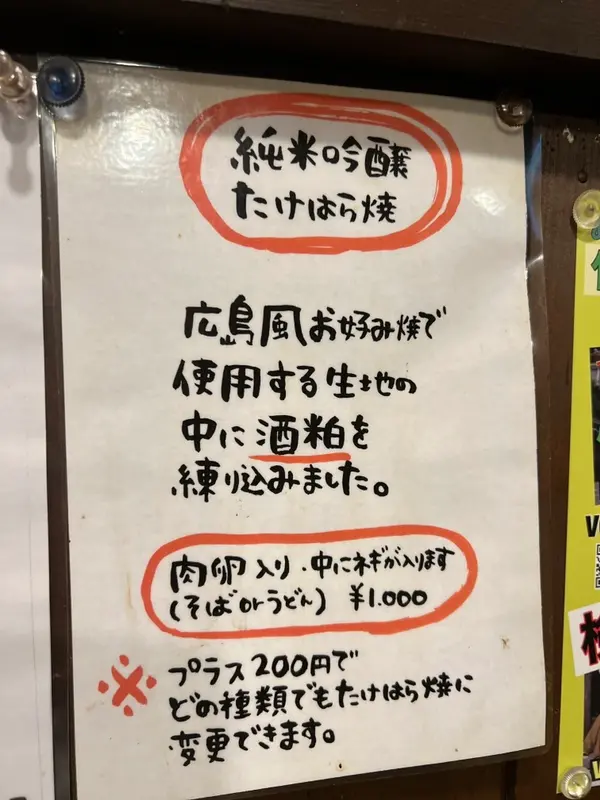 純米吟醸
たけはら焼
広島風お好み焼で
使用する生地の
中に酒粕を
練り込みました。
肉卵入り・中にネギが入ります
(そばorうどん) ¥1.000
※プラス200円で
どの種類でもたけはら焼に
変更できます。